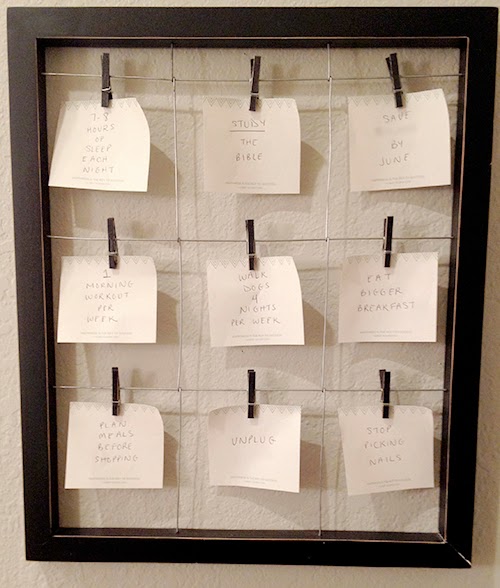 7-8
HOURS
OF
SLEEP
EACH
NIGHT
STUDY
THE
BIBLE
SAVE
BY
JUNE
1
MORNING
WORKOUT
PER
WEEK
WALK
DOGS
4
NIGHTS
PER WEEK
EAT
BIGGER
BREAKFAST
PLAN
MEALS
BEFORE
SHOPPING
UNPLUG
STOP
PICKING
NAILS